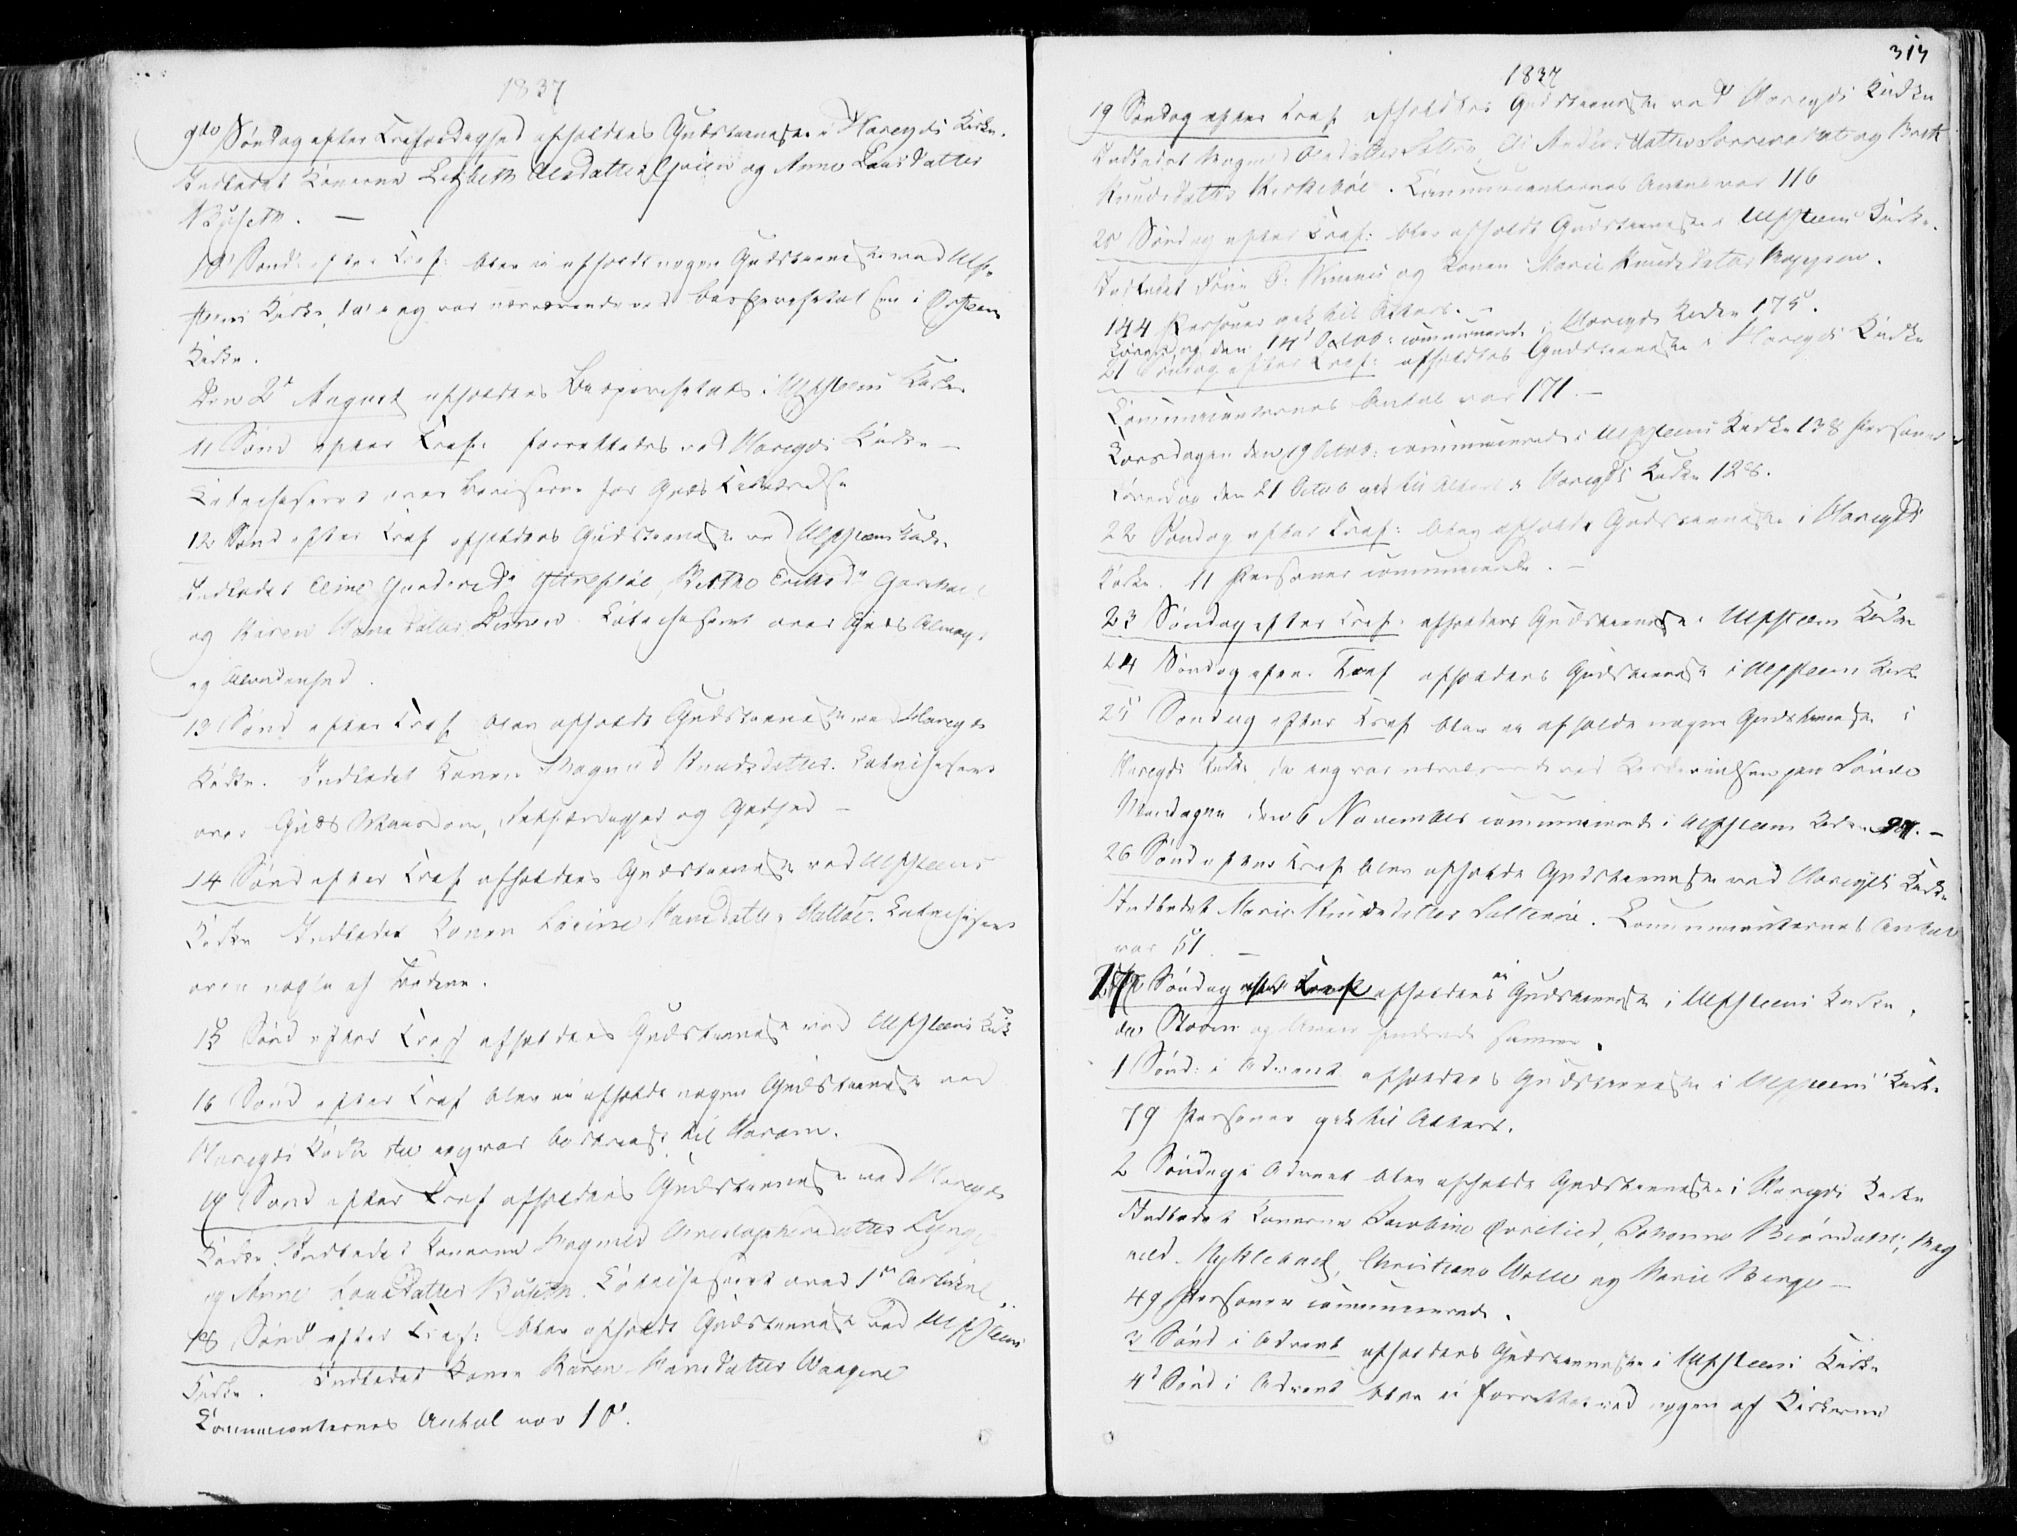 1837
9de Søndag efter Trefoldighed afholdtes Gudstieneste i Hareyds Kirke.
Indledet Konerne Lisbeth Olsdatter og Anne Larsdatter
Buseth. —
10 Sønd: efter Tref: blev ei afholdt nogen Gudstieneste ved Ulf-
steens Kirke, da jeg var nærværende ved Bispevisitatsen i Ørsteens
Kirke.
Den 2d August afholdtes Bispevisitats i Ulfsteens Kirke
11 Sønd efter Tref: forrettedes ved Hareyds Kirke —
Catechiseret over Beviserne for Guds Tilværelse
12 Sønd efter Tref afholdtes Gudstieneste ved Ulfsteens Kirke.
Indledet Eline, Berthe Eriksdr
og Karen Hansdatter. Catechiseret over Guds Almagt
og Alvidenhed.
13 Sønd efter Tref blev afholdt Gudstieneste ved Hareyds
Kirke. Indledet Konen Magnild Knudsdatter. Catechiseret
over Guds Viisdom, Retfærdighed og Godhed —
14 Sønd efter Tref afholdtes Gudstieneste ved Ulfsteens
Kirke Indledet Konen Hansdatter Hatløe. Catechiseret
over nogle af Budene.
15 Sønd efter Tref afholdtes Gudstieneste ved Ulfsteens Kirk
16 Sønd efter Tref blev ei afholdt nogen Gudstieneste ved
Hareyds Kirke da jeg var bortreist til Haram.
17 Sønd efter Tref afholdtes Gudstieneste ved Hareyds
Kirke. Indledet Konerne Magnild Christophersdatter
og Anne Larsdatter Buseth. Catechiseret over 1ste Artikel
18 Sønd efter Tref: blev afholdt Gudstieneste ved Ulfsteens
Kirke. Indledet Konen Karen Hansdatter Vaagene
Communicanternes Antal var 10.
317
1837
19 Søndag efter Tref afholdtes Gudstieneste ved Hareyds Kirke
Indledet Magnild Olsdatter, Andersdatter og Brith
Knudsdatter Kirkebøe. Communicanternes Antal var 116
20 Søndag efter Tref: blev afholdt Gudstieneste i Ulfsteens Kirke.
Indledet og Konen Marie Knudsdatter Myrene.
144 Personer gik til Alters. —
Løverdag den 14d Octob: communicerede i Hareyds Kirke 175.
21 Søndag efter Tref: afholdtes Gudstieneste i Hareyds Kirke
Communicanternes Antal var 171. —
Torsdagen den 19 Octob: communicerede i Ulfsteens Kirke 138 Personer
Løverdag den 21 Octob gik til Alters i Hareyds Kirke 128.
22 Søndag efter Tref: blev afholdt Gudstieneste i Hareyds
Kirke. 11 Personer communicerede. —
23 Søndag efter Tref: afholdtes Gudstieneste i Ulfsteens Kirke
24 Søndag efter Tref afholdtes Gudstieneste i Ulfsteens Kirke
25 Søndag efter Tref blev ei afholdt nogen Gudstieneste i
Hareyds Kirke da jeg var nærværende ved
Mandagen den 6 November communicerede i Ulfsteens Kirke —
26 Sønd efter Tref blev afholdt Gudstieneste ved Hareyds Kirke
Indledet Marie Knudsdatter. Communicanternes Antal
var 51. —
Søndag efter Tref afholdtes ei Gudstieneste i Ulfsteens Kirke,
da Storm og hindrede samme.
1 Sønd: i Advent afholdtes Gudstieneste i Ulfsteens Kirke
79 Personer gik til Alters.
2 Søndag i Advent blev afholdt Gudstieneste i Hareyds Kirke
Indledet Konerne Jacobine, Johanne Biørndatter, Mag
nild Myklebust, Christiane og Marie Berge —
49 Personer communicerede.
3 Sønd i Advent afholdtes Gudstieneste i Ulfsteens Kirke
4d Sønd i Advent blev ei forrettet ved nogen af Kirkerne